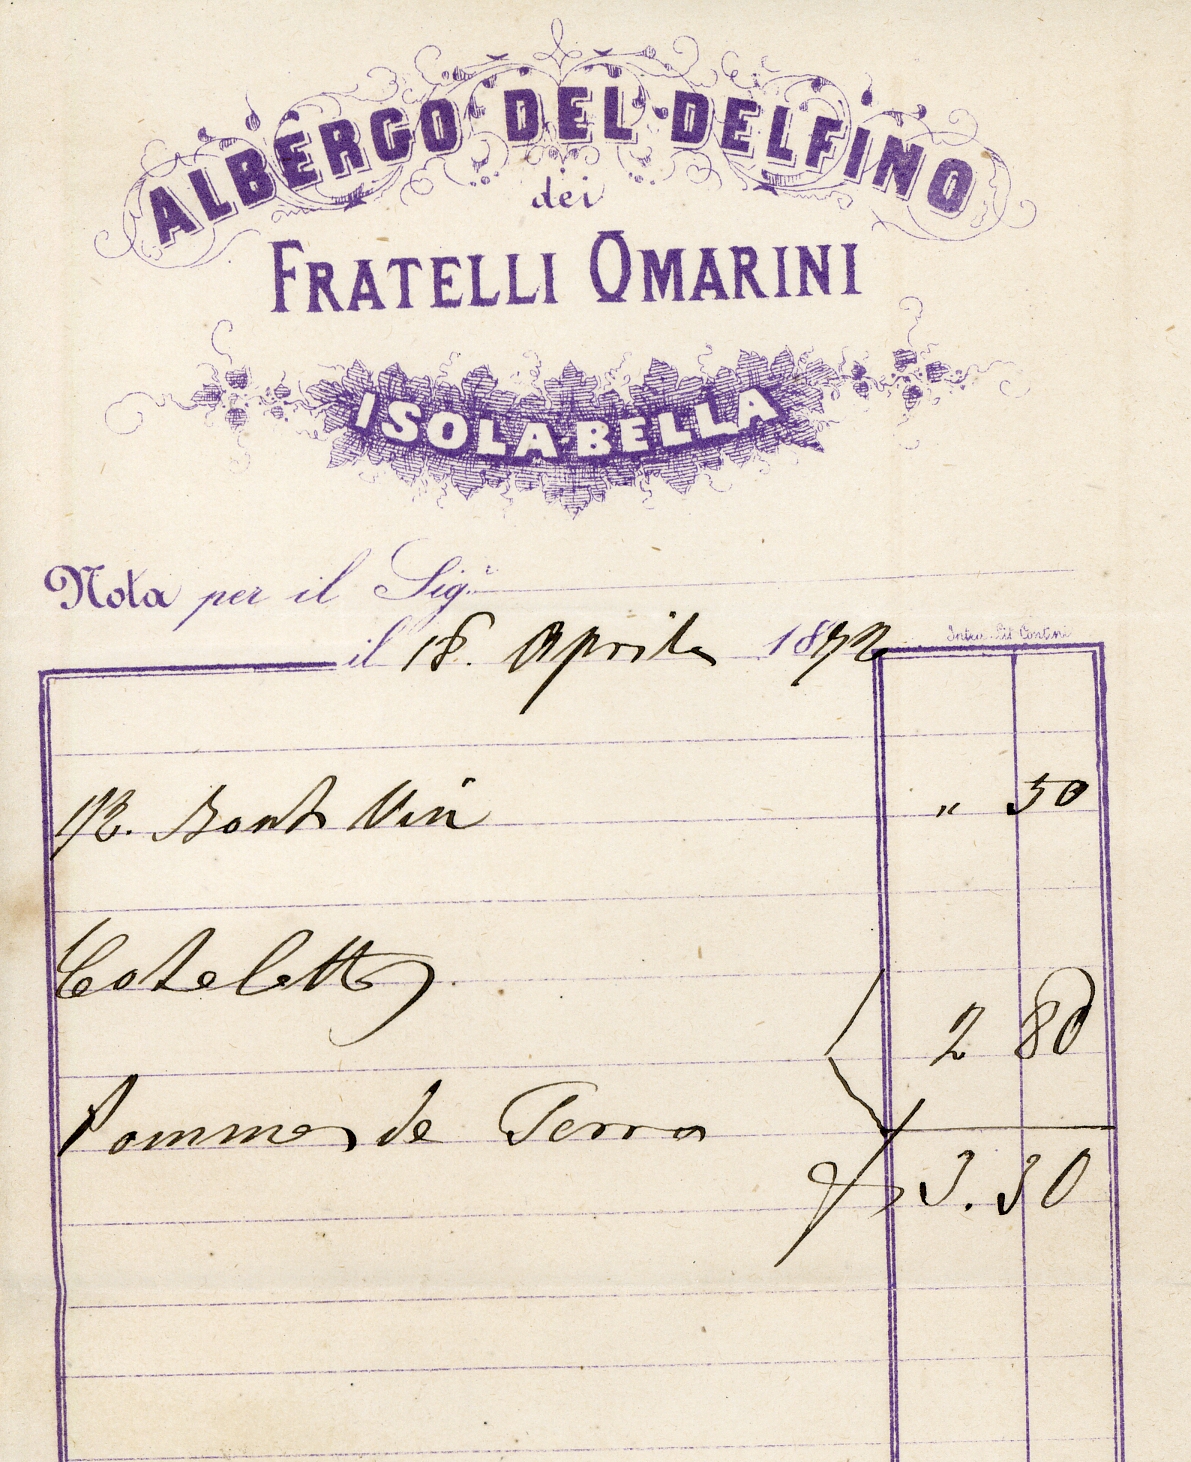 ALBERGO DEL DELFINO
dei
FRATELLI OMARINI
ISOLA-BELLA
Nota per il Sig.r
il 18. Aprile 1872
Intra Lit Contini
1/2. Bout Vin " 50
Cotelettes
2 80
Pommes de Terra
3.30